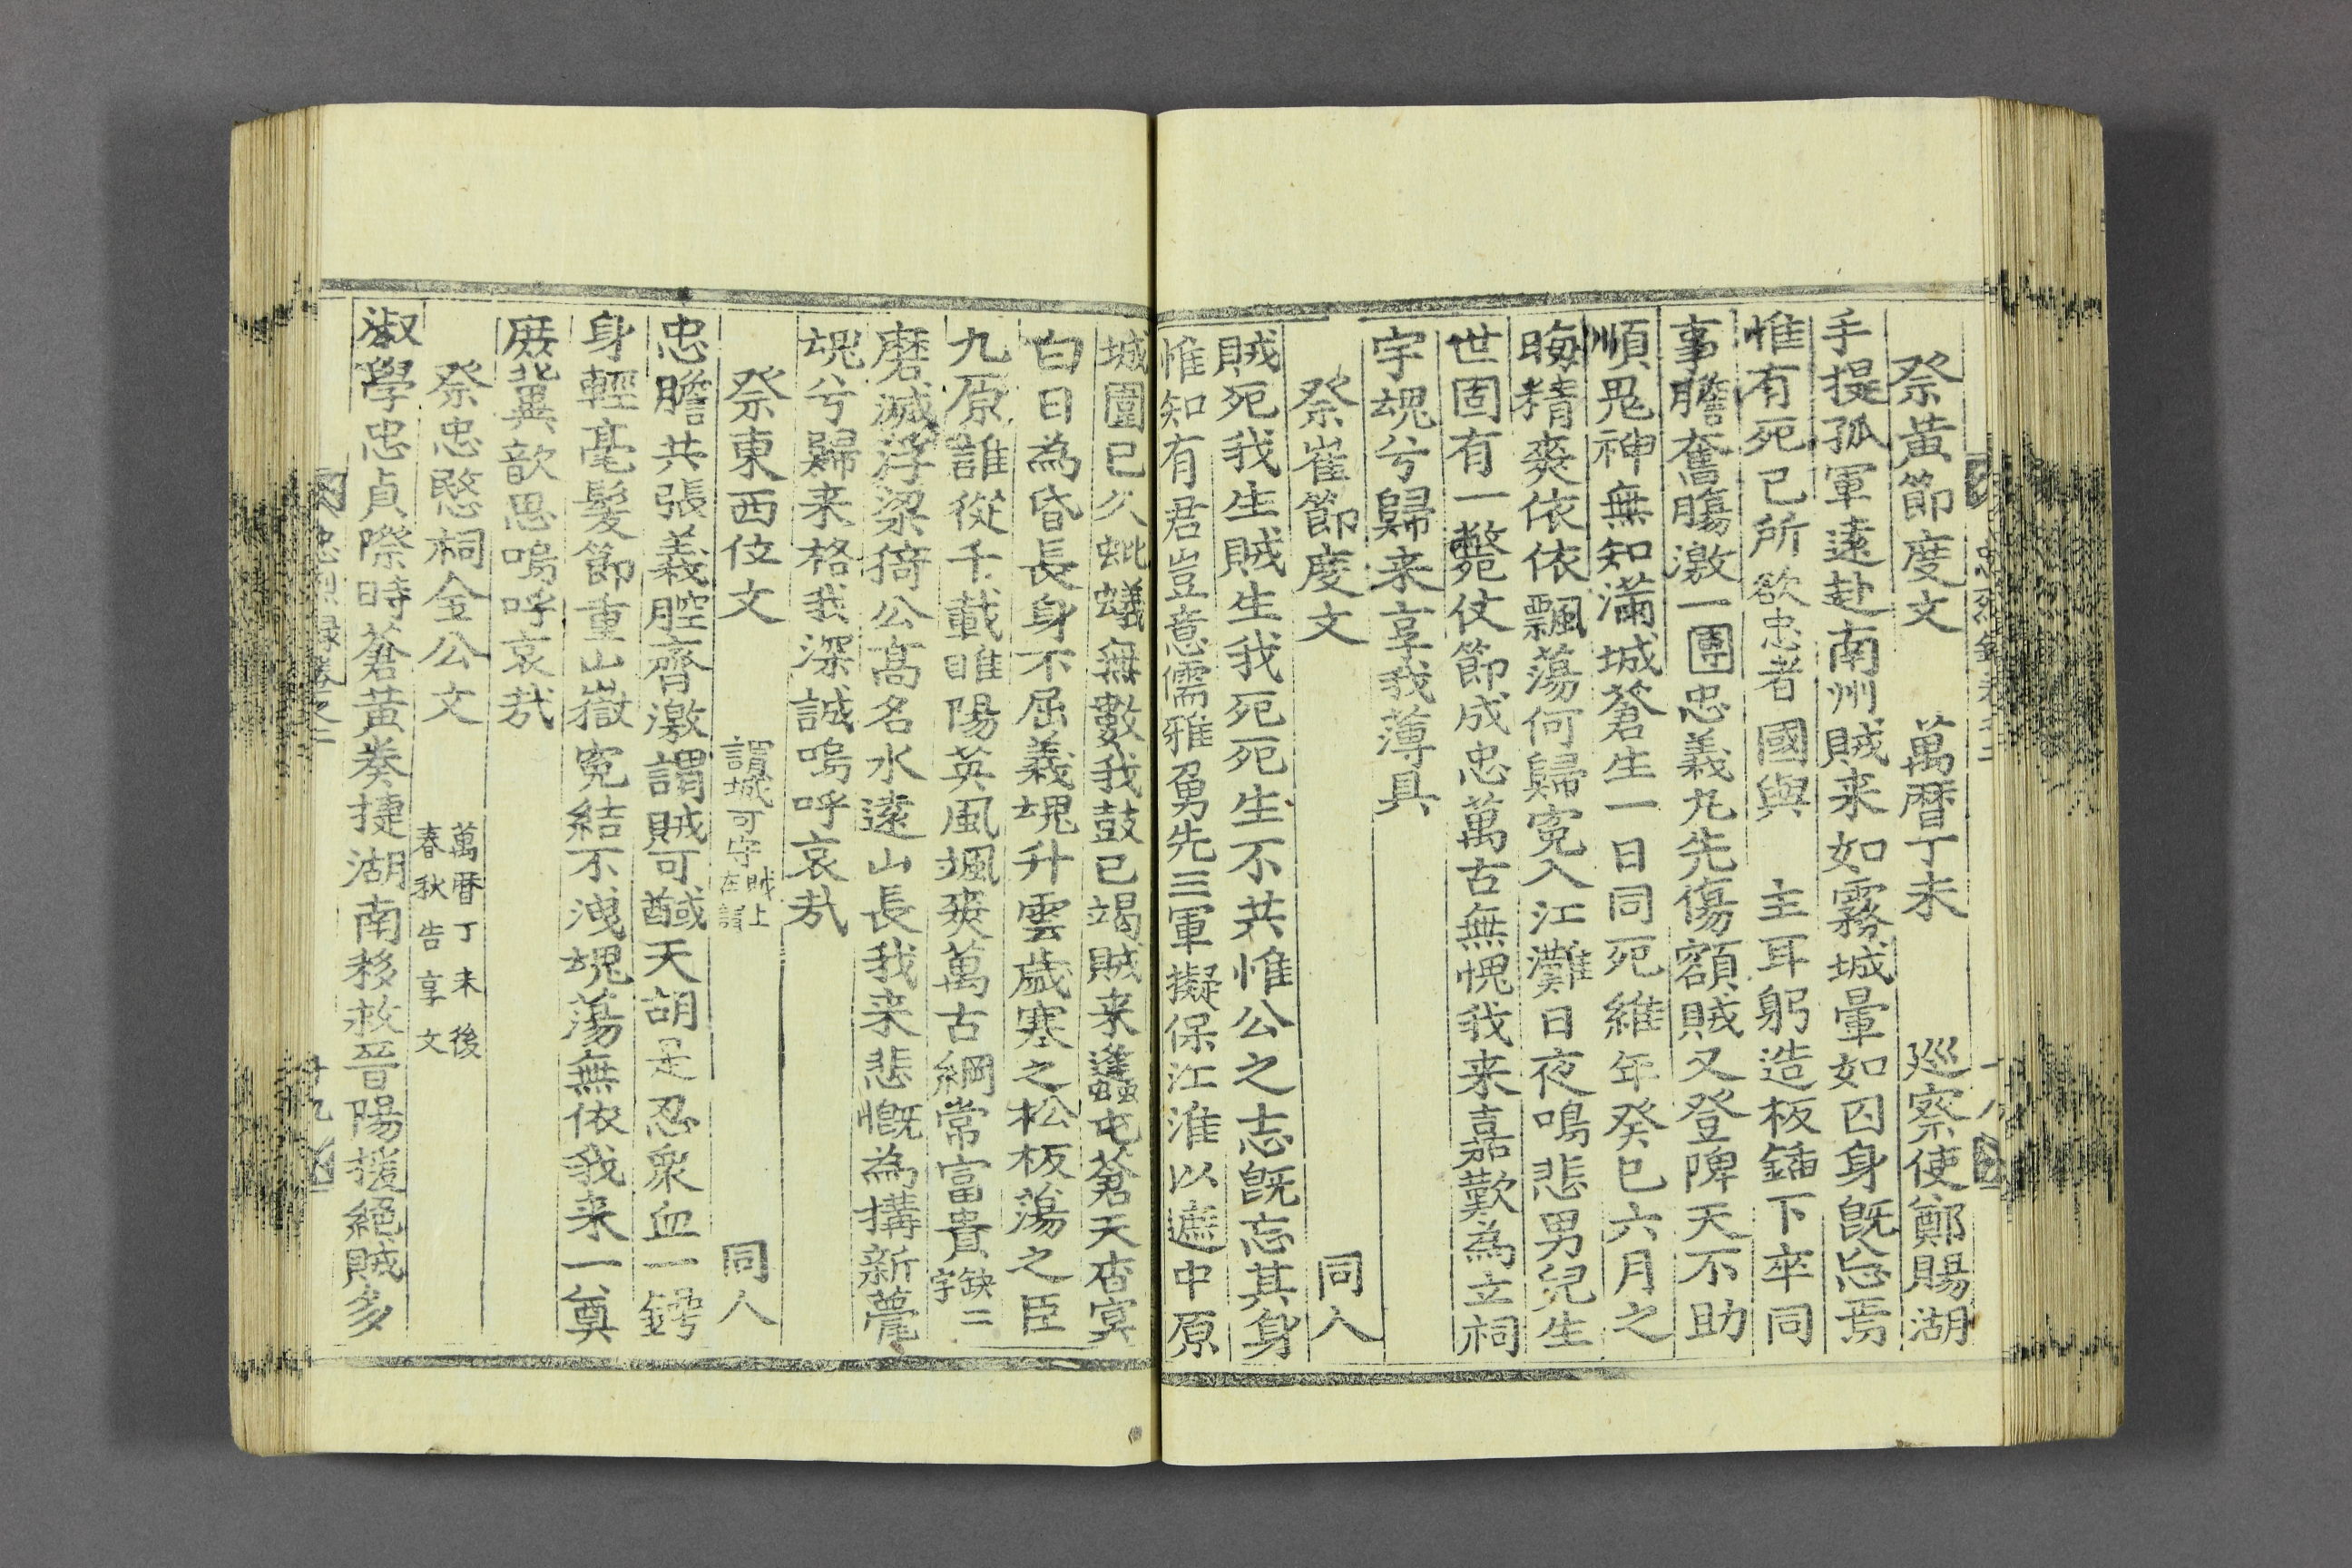 祭黃節度文 萬曆丁未 廵察使鄭賜湖
手提孤軍遠赴南州賊来如霧城暈如囙身旣忘焉
惟有死已所欲忠者國與 主耳躬造板鍤下卒同
事膽奮膓激一團忠義九先傷額賊又登陴天不助
順鬼神無知滿城蒼生一日同死維年癸巳六月之
晦精爽依依飄蕩何歸寃入江灘日夜鳴悲男兒生
世固有一斃仗節成忠萬古無愧我来嘉歎為立祠
宇魂兮歸来享我薄具
祭崔節度文 同人
賊死我生賊生我死死生不共惟公之志旣忘其身
惟知有君豈意儒雅勇先三軍擬保江淮以遮中原
城圍已久蚍蟻無數我鼓已竭賊来蜂屯蒼天杳冥
白日為昏長身不屈義魂升雲歲寒之松板蕩之臣
九原誰從千載睢陽英風颯爽萬古綱常富貴缺二字
磨滅浮梁猗公高名水遠山長我来悲慨為搆新甍
魂兮歸来格我深誠嗚呼哀㢤
祭東西位文 謂城可守在謂賊上 同人
忠膽共張義腔齊激謂賊可馘天胡是忍衆血一鍔
身輕毫髮節重山嶽寃結不洩魂蕩無依我来一奠
庶冀歆思嗚呼哀㢤
祭忠愍祠金公文 萬曆丁未後春秋告享文
淑學忠貞際時蒼黃奏捷湖南移救晉陽援絕賊多
忠烈錄卷之二 十八
忠烈錄卷之二 十九